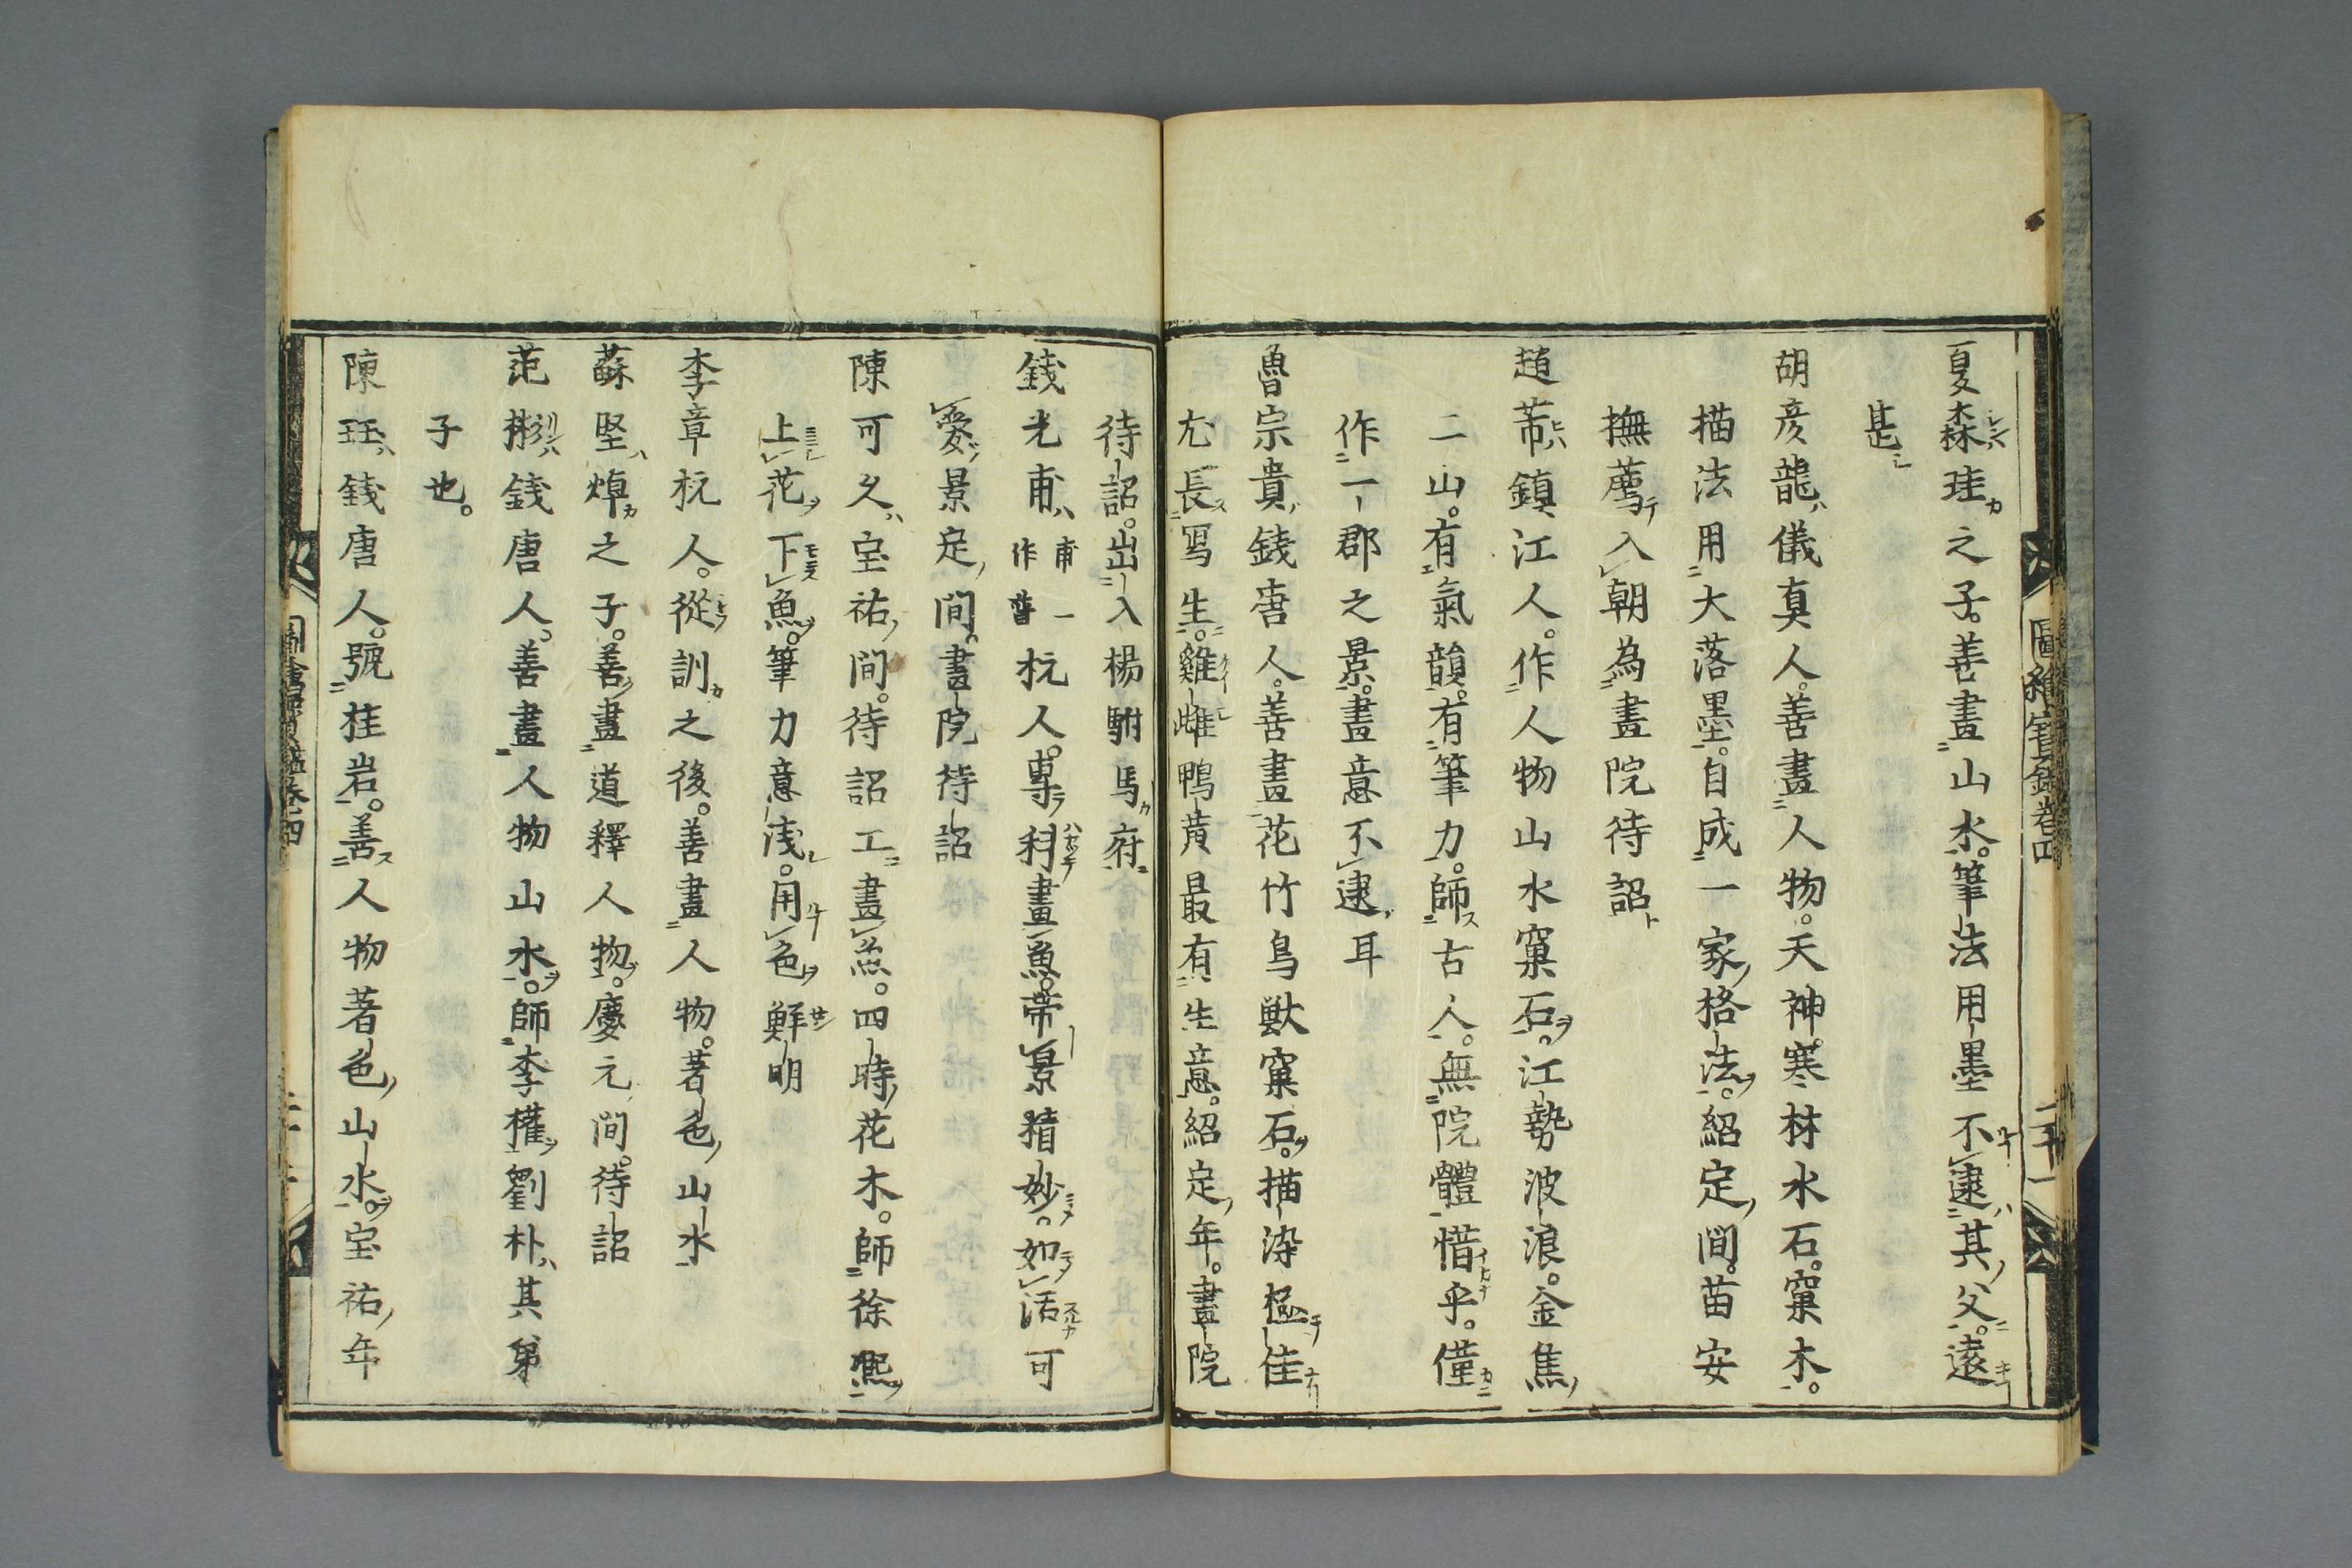 夏森珪之子。善畫山水。筆法用墨不逮其父。遠
甚
胡彦龍儀真人。善畫人物。天神。寒林水石。窠木。
描法用大落墨。自成一家格法。紹定間。苗安
撫薦入朝為畫院待詔
趙芾鎮江人。作人物山水窠石。江勢波浪。金焦
二山。有氣韻。有筆力。師古人。無院體惜乎。僅
作一郡之景。畫意不逮耳
魯宗貴錢唐人。善畫花竹鳥獣窠石。描染極佳
尤長寫生。雞雌鴨黄最有生意。紹定年。畫院
待詔。出入楊駙馬府
錢光甫 甫一作普 杭人。專科畫魚。帶景精妙。如活可
愛景定間。畫院待詔
陳可久宝祐間。待詔工畫魚。四時花木。師徐熙
上花下魚。筆力意浅。用色鮮明
李章杭人。從訓之後。善畫人物。著色山水
蘇堅焯之子。善畫道釋人物。慶元間。待詔
范彬錢唐人。善畫人物山水。師李權劉朴其弟
子也。
陳珏錢唐人。號桂岩。善人物著色山水。宝祐年